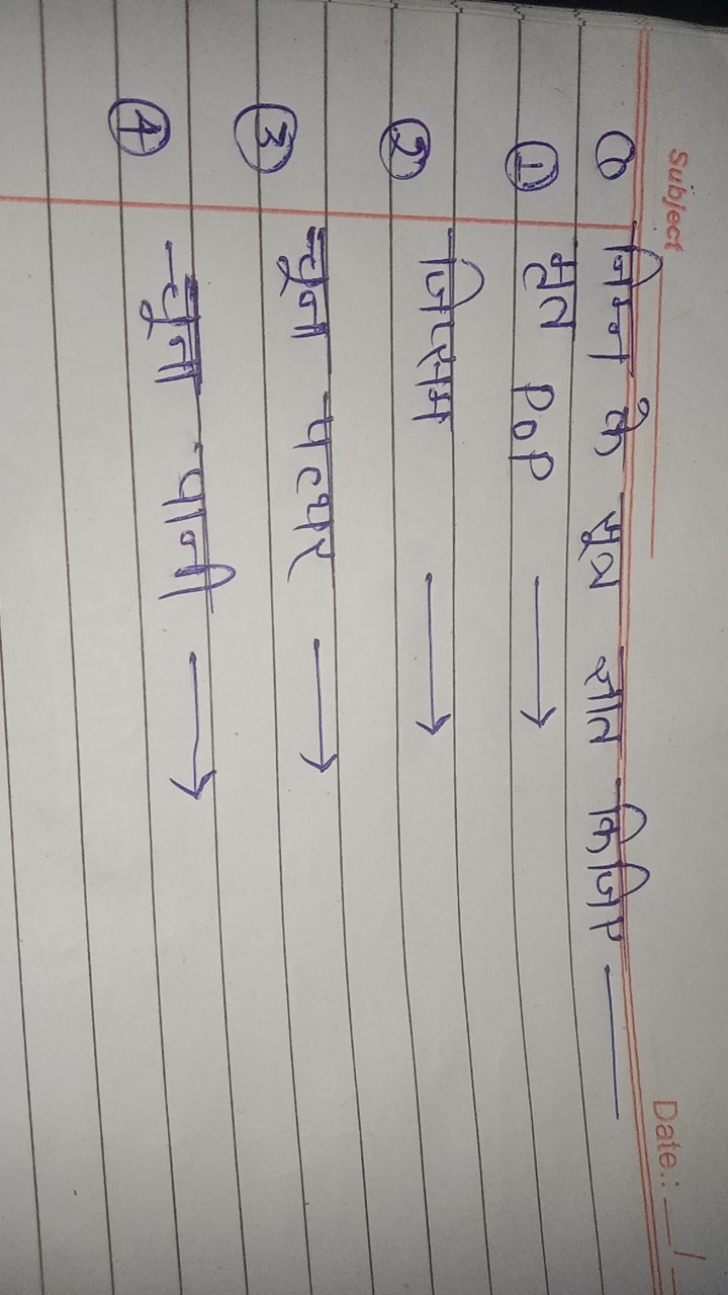 Subject Date.: __/_
Q निम्न के सूत्र ज्ञात किजिए —
① POP →
② जिप्सम →
③ चूना पत्थर →
④ चूना पानी →